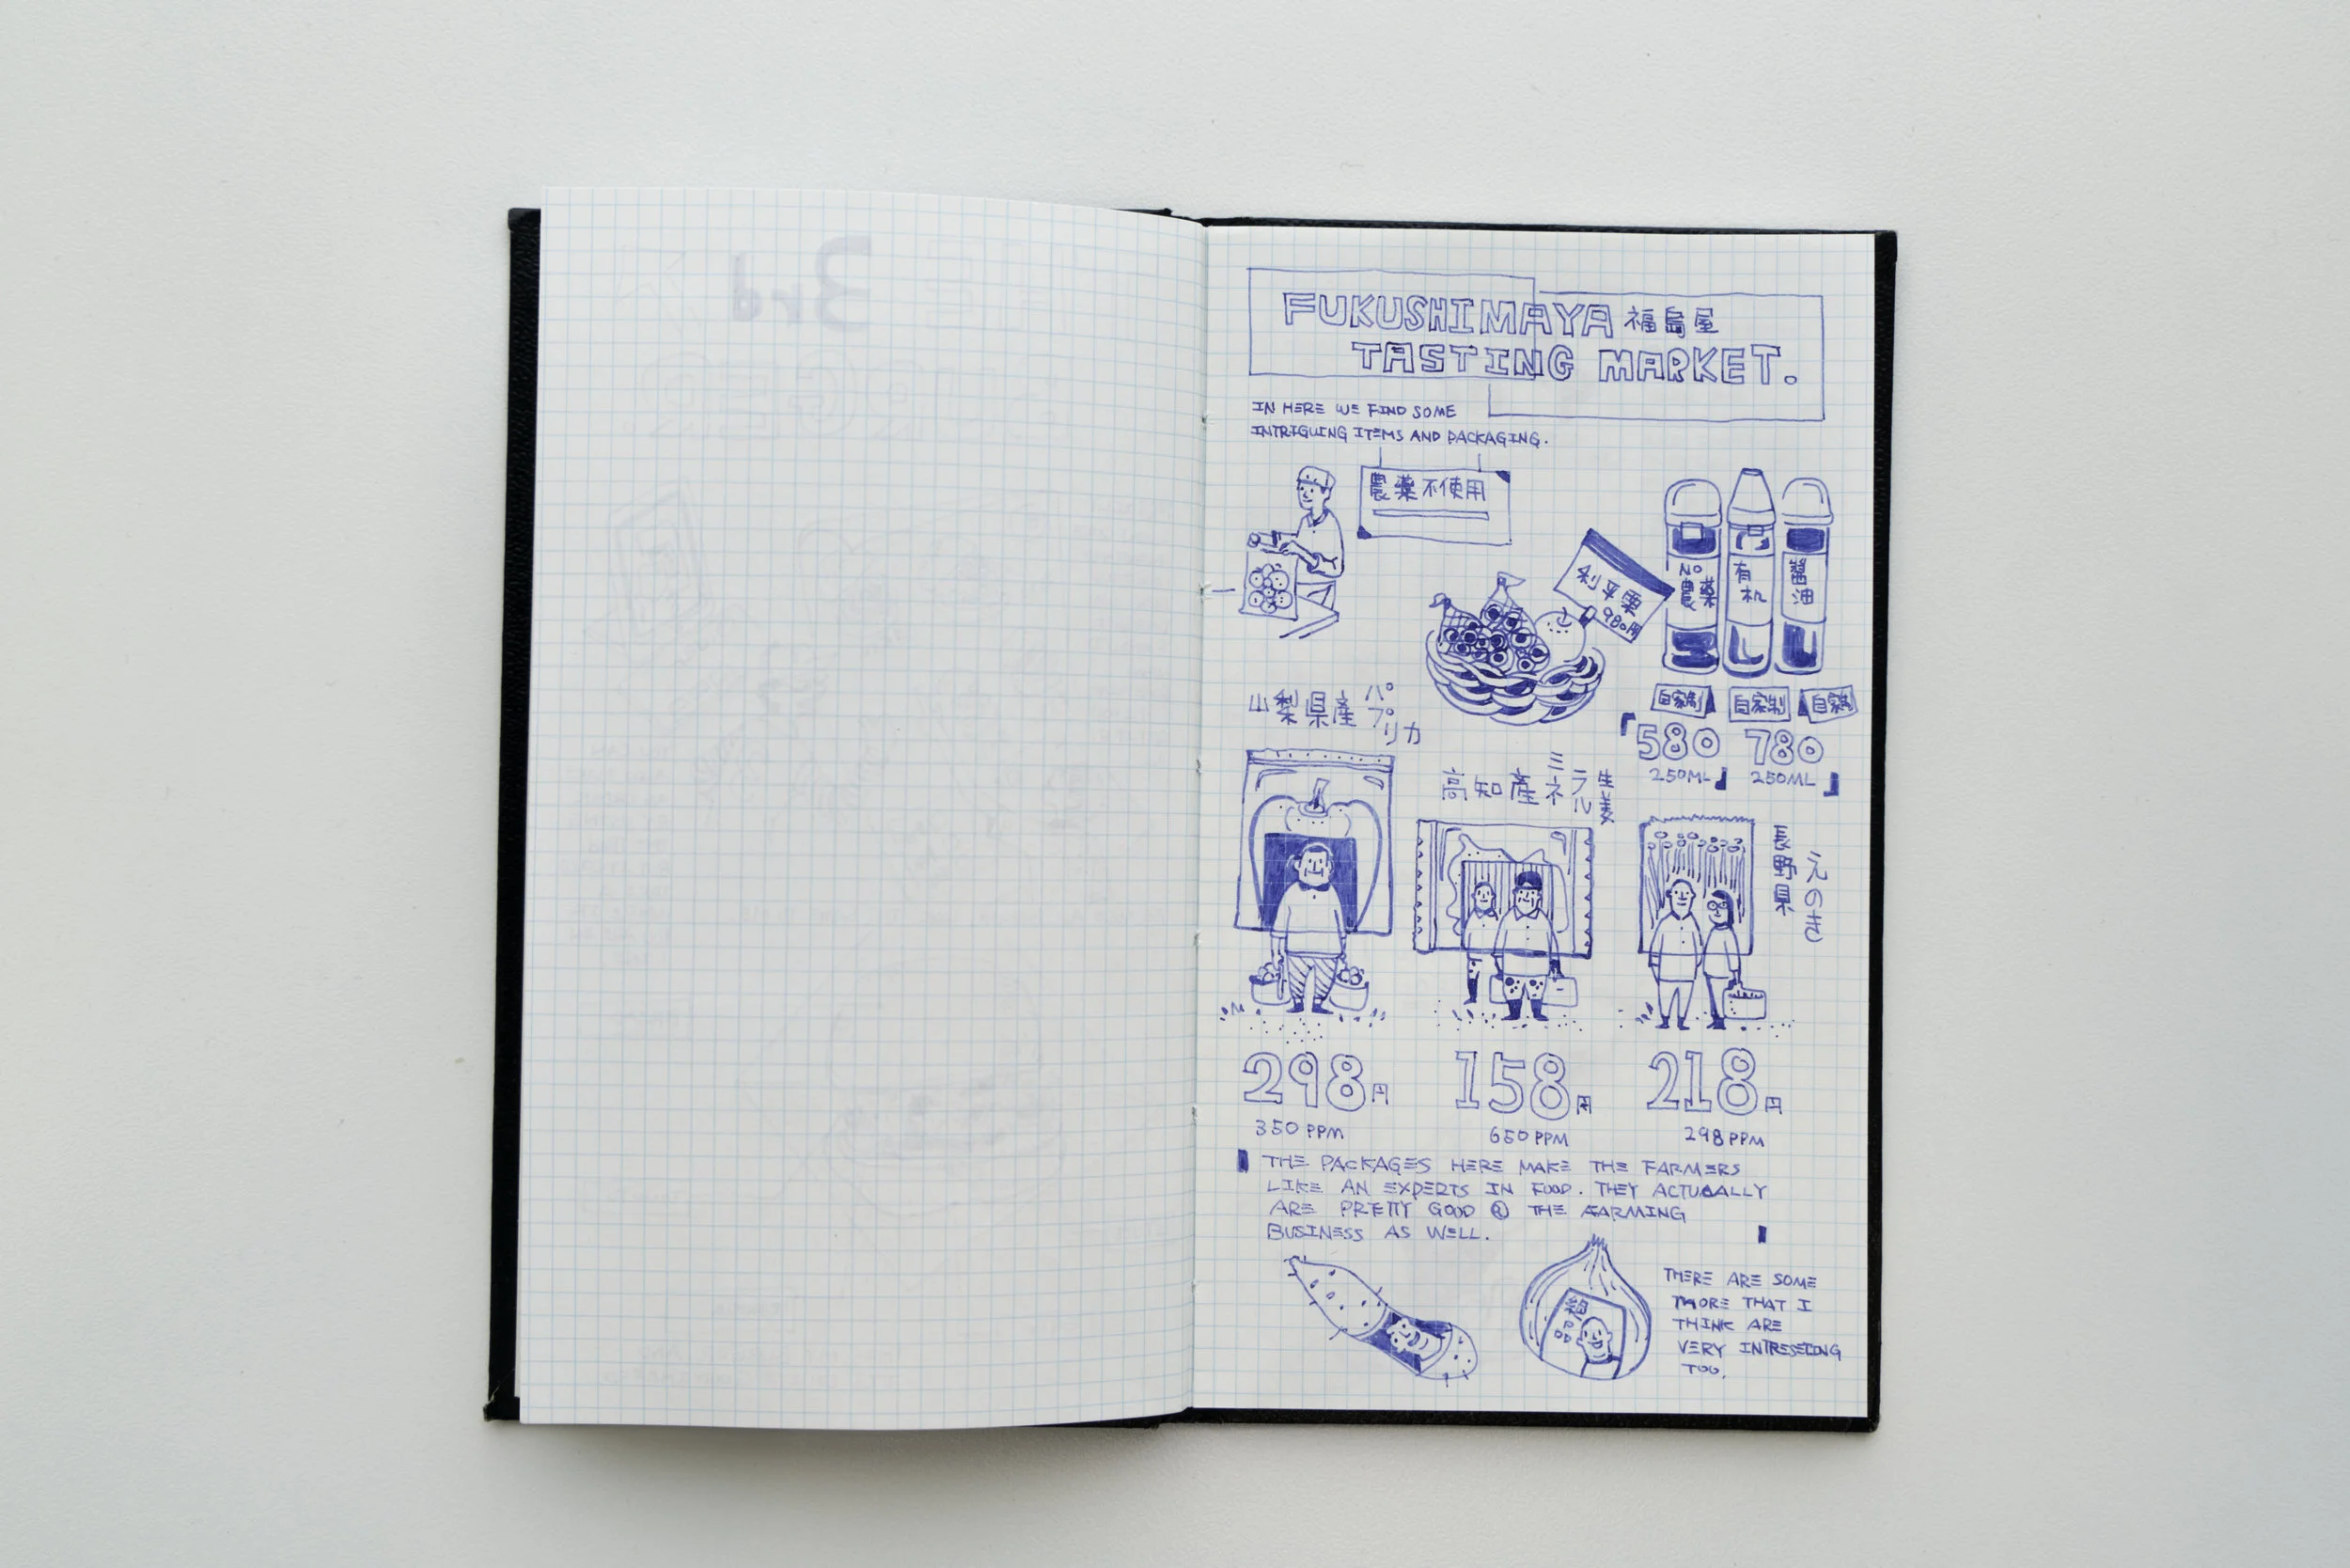 3rd
FUKUSHIMAYA 福島屋
TASTING MARKET.
IN HERE WE FIND SOME
INTRIGUING ITEMS AND PACKAGING.
農薬不使用
利平栗
980円
NO
農薬
有机
醬油
自家制
自家制
自家制
「580
250ML」
780
250ML」
山梨県産パプリカ
高知産ミネラル生姜
長野県
えのき
298円
350 PPM
158円
650 PPM
218円
298 PPM
THE PACKAGES HERE MAKE THE FARMERS
LIKE AN EXPERTS IN FOOD. THEY ACTUALLY
ARE PRETTY GOOD @ THE FARMING
BUSINESS AS WELL.
THERE ARE SOME
MORE THAT I
THINK ARE
VERY INTRESETING
TOO.